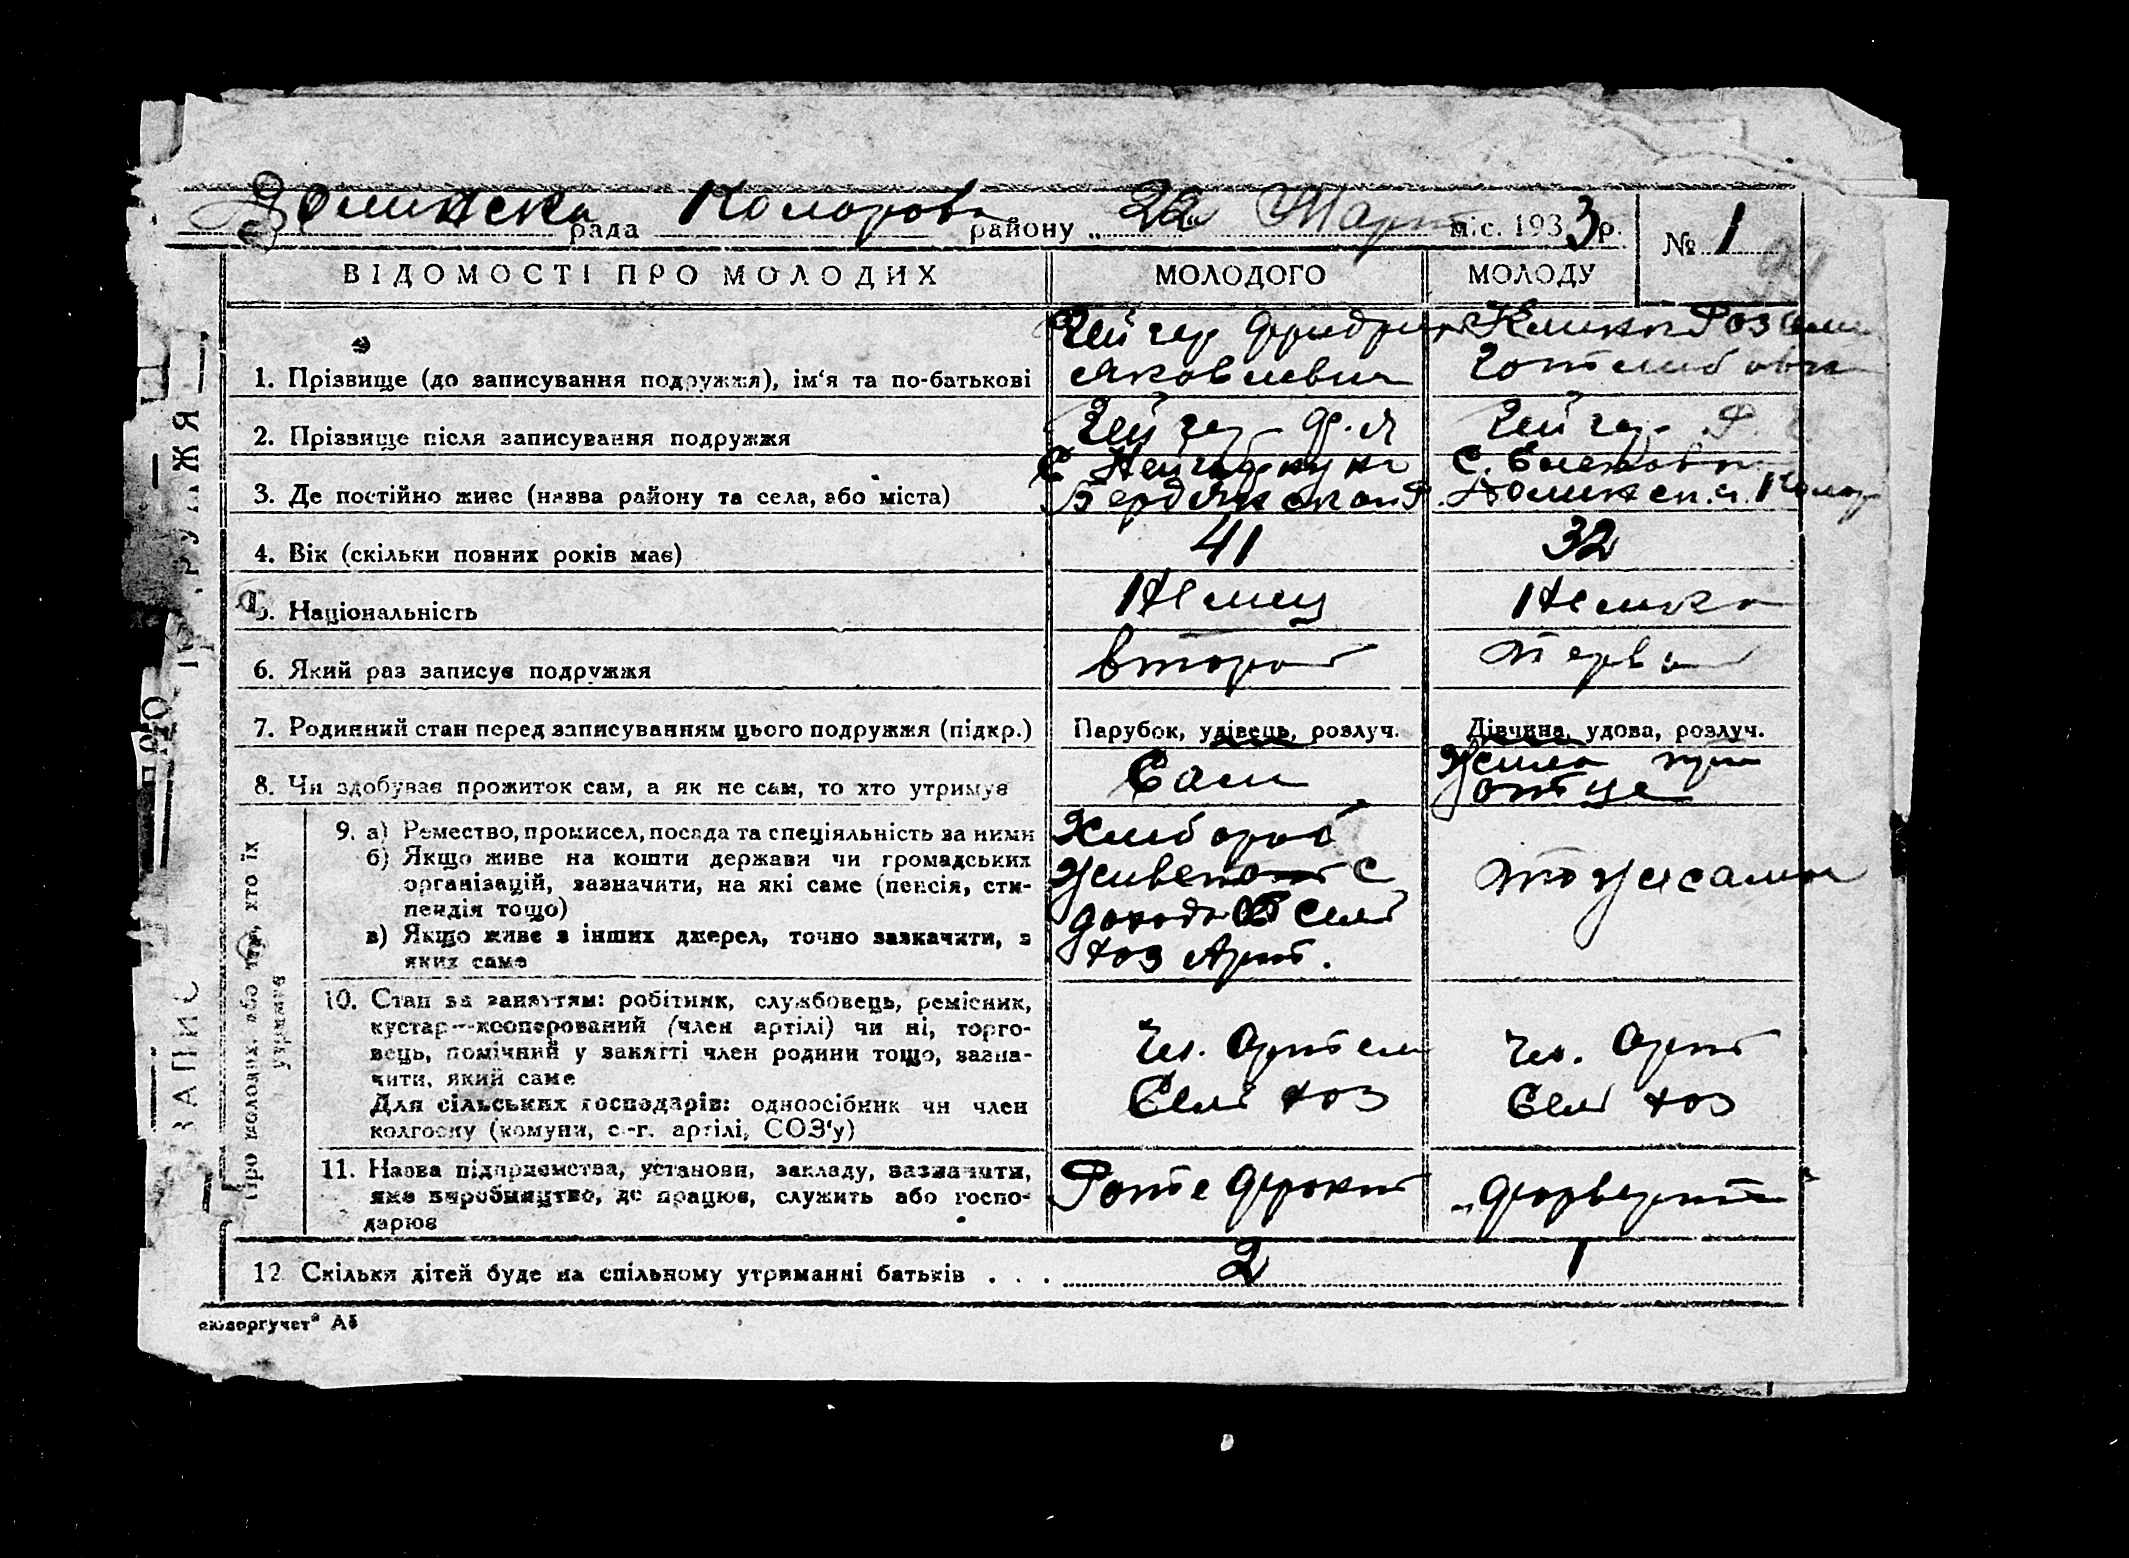 рада Коларова району „22" Март м.с. 1933 р. № 1
ВІДОМОСТІ ПРО МОЛОДИХ МОЛОДОГО МОЛОДУ
1. Прізвище (до записування подружжя), ім'я та по-батькові
Гейгер Фридрих
Яковлевич
Клинк
Готлибовна
2. Прізвище після записування подружжя Гейгер Ф. Я Гейгер Р.
3. Де постійно живе (назва району та села, або міста)
С.
Бердянского Р.
С.
4. Вік (скільки повних років має) 41 32
5. Національність Немец Немка
6. Який раз записує подружжя второй первый
7. Родинний стан перед записуванням цього подружжя (підкр.) Парубок, удівець, розлуч. Дівчина, удова, розлуч.
8. Чи здобуває прожиток сам, а як не сам, то хто утримує Сам
Жила при
отце
9. а) Ремество, промисел, посада та спеціяльність за ними
б) Якщо живе на кошти держави чи громадських
організацій, зазначити, на які саме (пенсія, сти-
пендія тощо)
в) Якщо живе з інших джерел, точно зазначити, з
яких саме
Хлебороб
Живет с
дохода Сель
хоз Арт.
тожесамое
10. Стан за заняттям: робітник, службовець, ремісник,
кустар—кооперований (член артілі) чи ні, торго-
вець, помічний у занятті член родини тощо, зазна-
чити, який саме
Для сільських господарів: одноосібник чи член
колгоспу (комуни, с.-г. артілі, СОЗ'у)
Чл. Артели
Сель хоз
Чл. Арт
Сель хоз
11. Назва підприємства, установи, закладу, зазначити,
яке виробництво, де працює, служить або госпо-
дарює
Роте Фронт
„Форверт"
12. Скільки дітей буде на спільному утриманні батьків . . . 2 1
ЗАПИС ПРО ПОДРУЖЖЯ
про молодих, або тих, хто їх
утримує